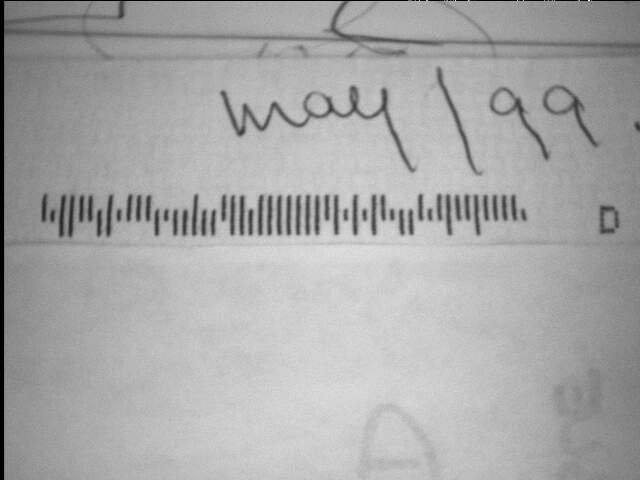 may/99
D